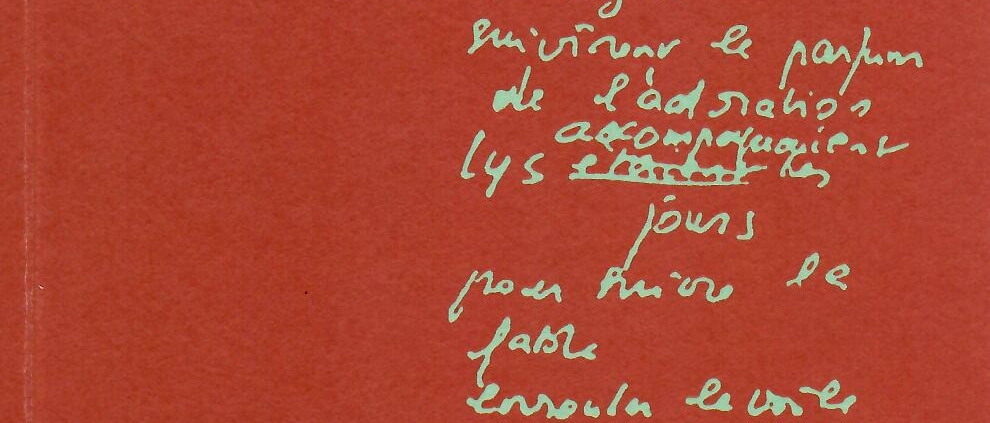 suivîrent le parfum
de l'adoration
accompagnaient
lys les
jours
pour suivre la
fable
le voile